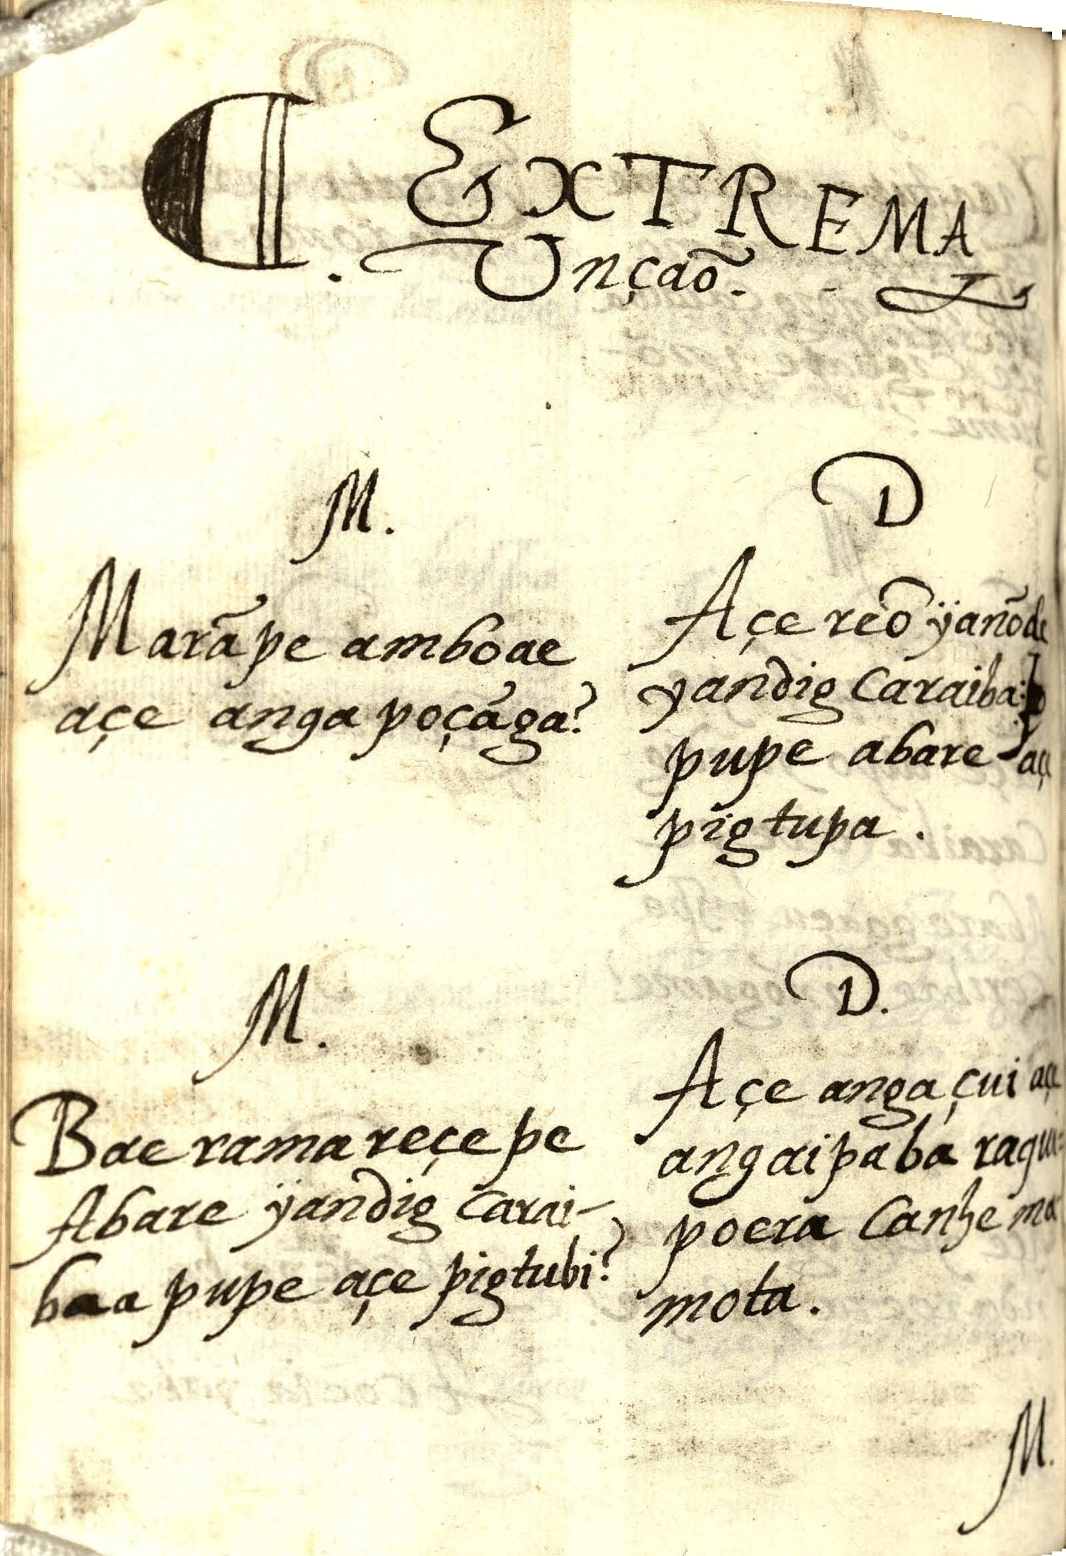 ¶. EXTREMA
Unçaõ.
M.
Marãpe amboae
açe anga poçãga?
D
Açe reõ yanõde
yandig Caraiba
pupe abare açe
pigtupa.
M.
Bae rama reçe pe
Abare yandig Carai-
baa pupe açe pigtubi?
D.
Açe anga çui açe
angaipaba raqui-
poera Canhe ma
mota.
M.